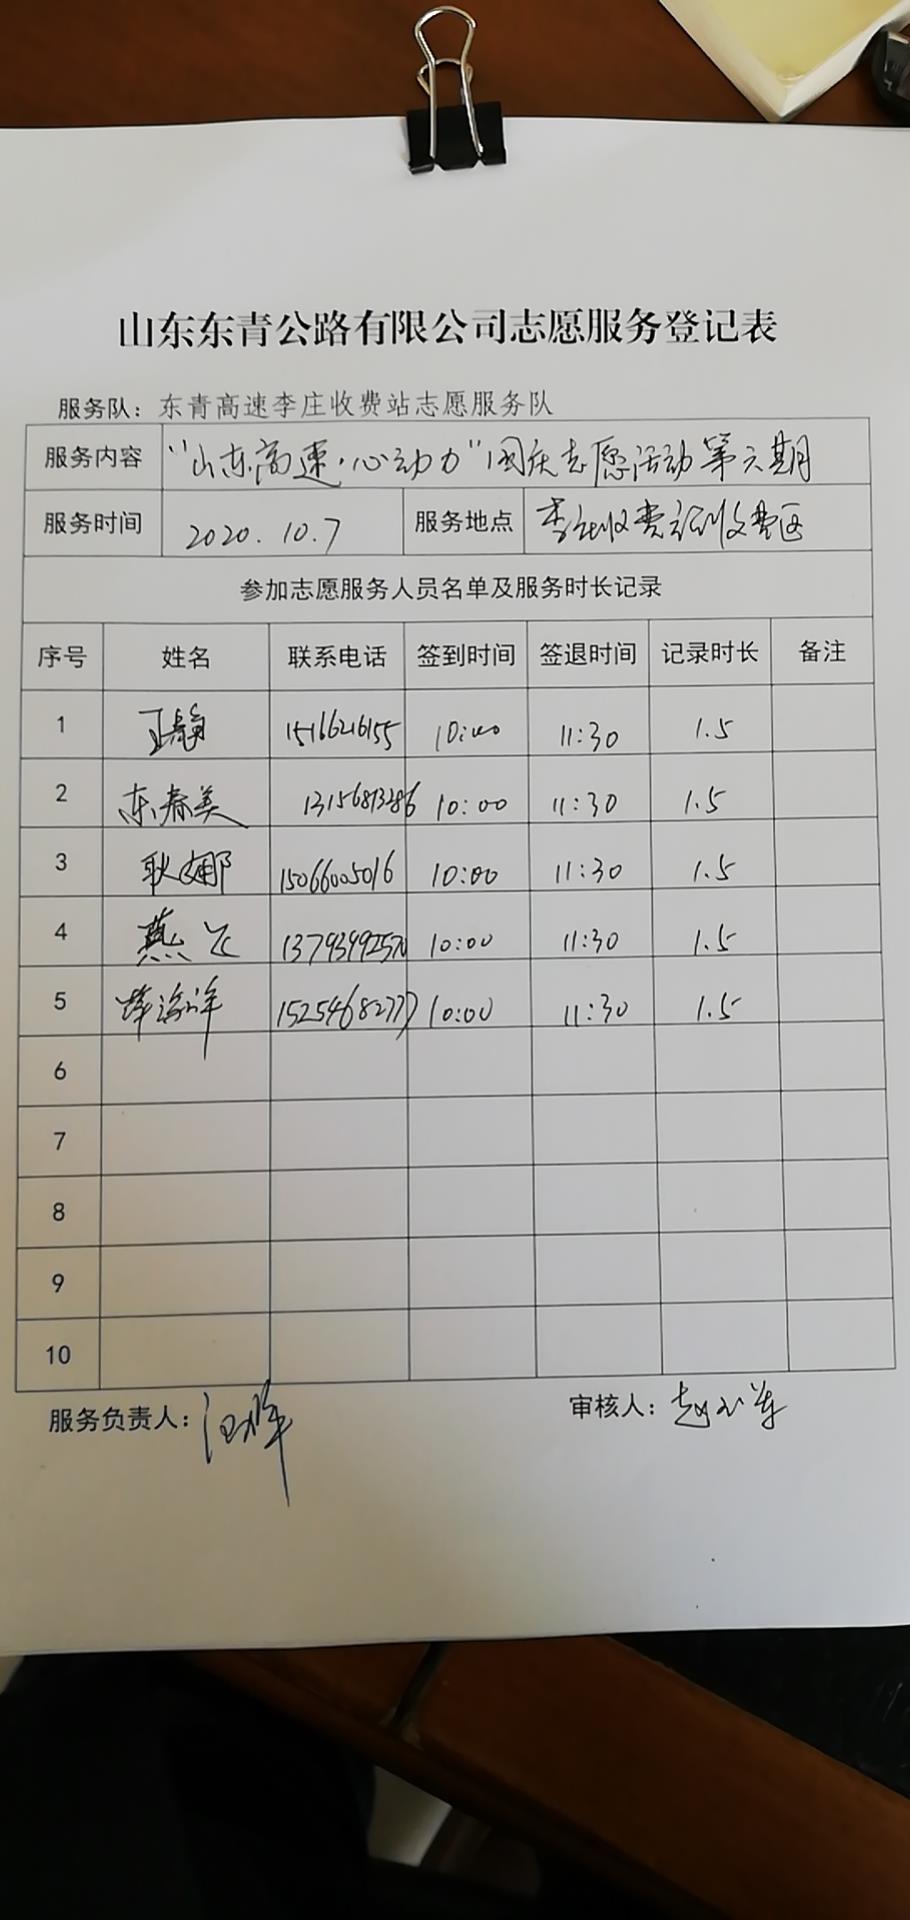 山东东青公路有限公司志愿服务登记表
服务队：东青高速李庄收费站志愿服务队
服务内容 “山东高速·心动力”国庆志愿活动第六期
服务时间 2020.10.7 服务地点 李庄收费站收费区
参加志愿服务人员名单及服务时长记录
序号 姓名 联系电话 签到时间 签退时间 记录时长 备注
1 王静 15166216155 10:00 11:30 1.5
2 东春美 13156813286 10:00 11:30 1.5
3 耿娜 15066005016 10:00 11:30 1.5
4 燕飞 13793992570 10:00 11:30 1.5
5 海洋 15254682777 10:00 11:30 1.5
6
7
8
9
10
服务负责人： 审核人：